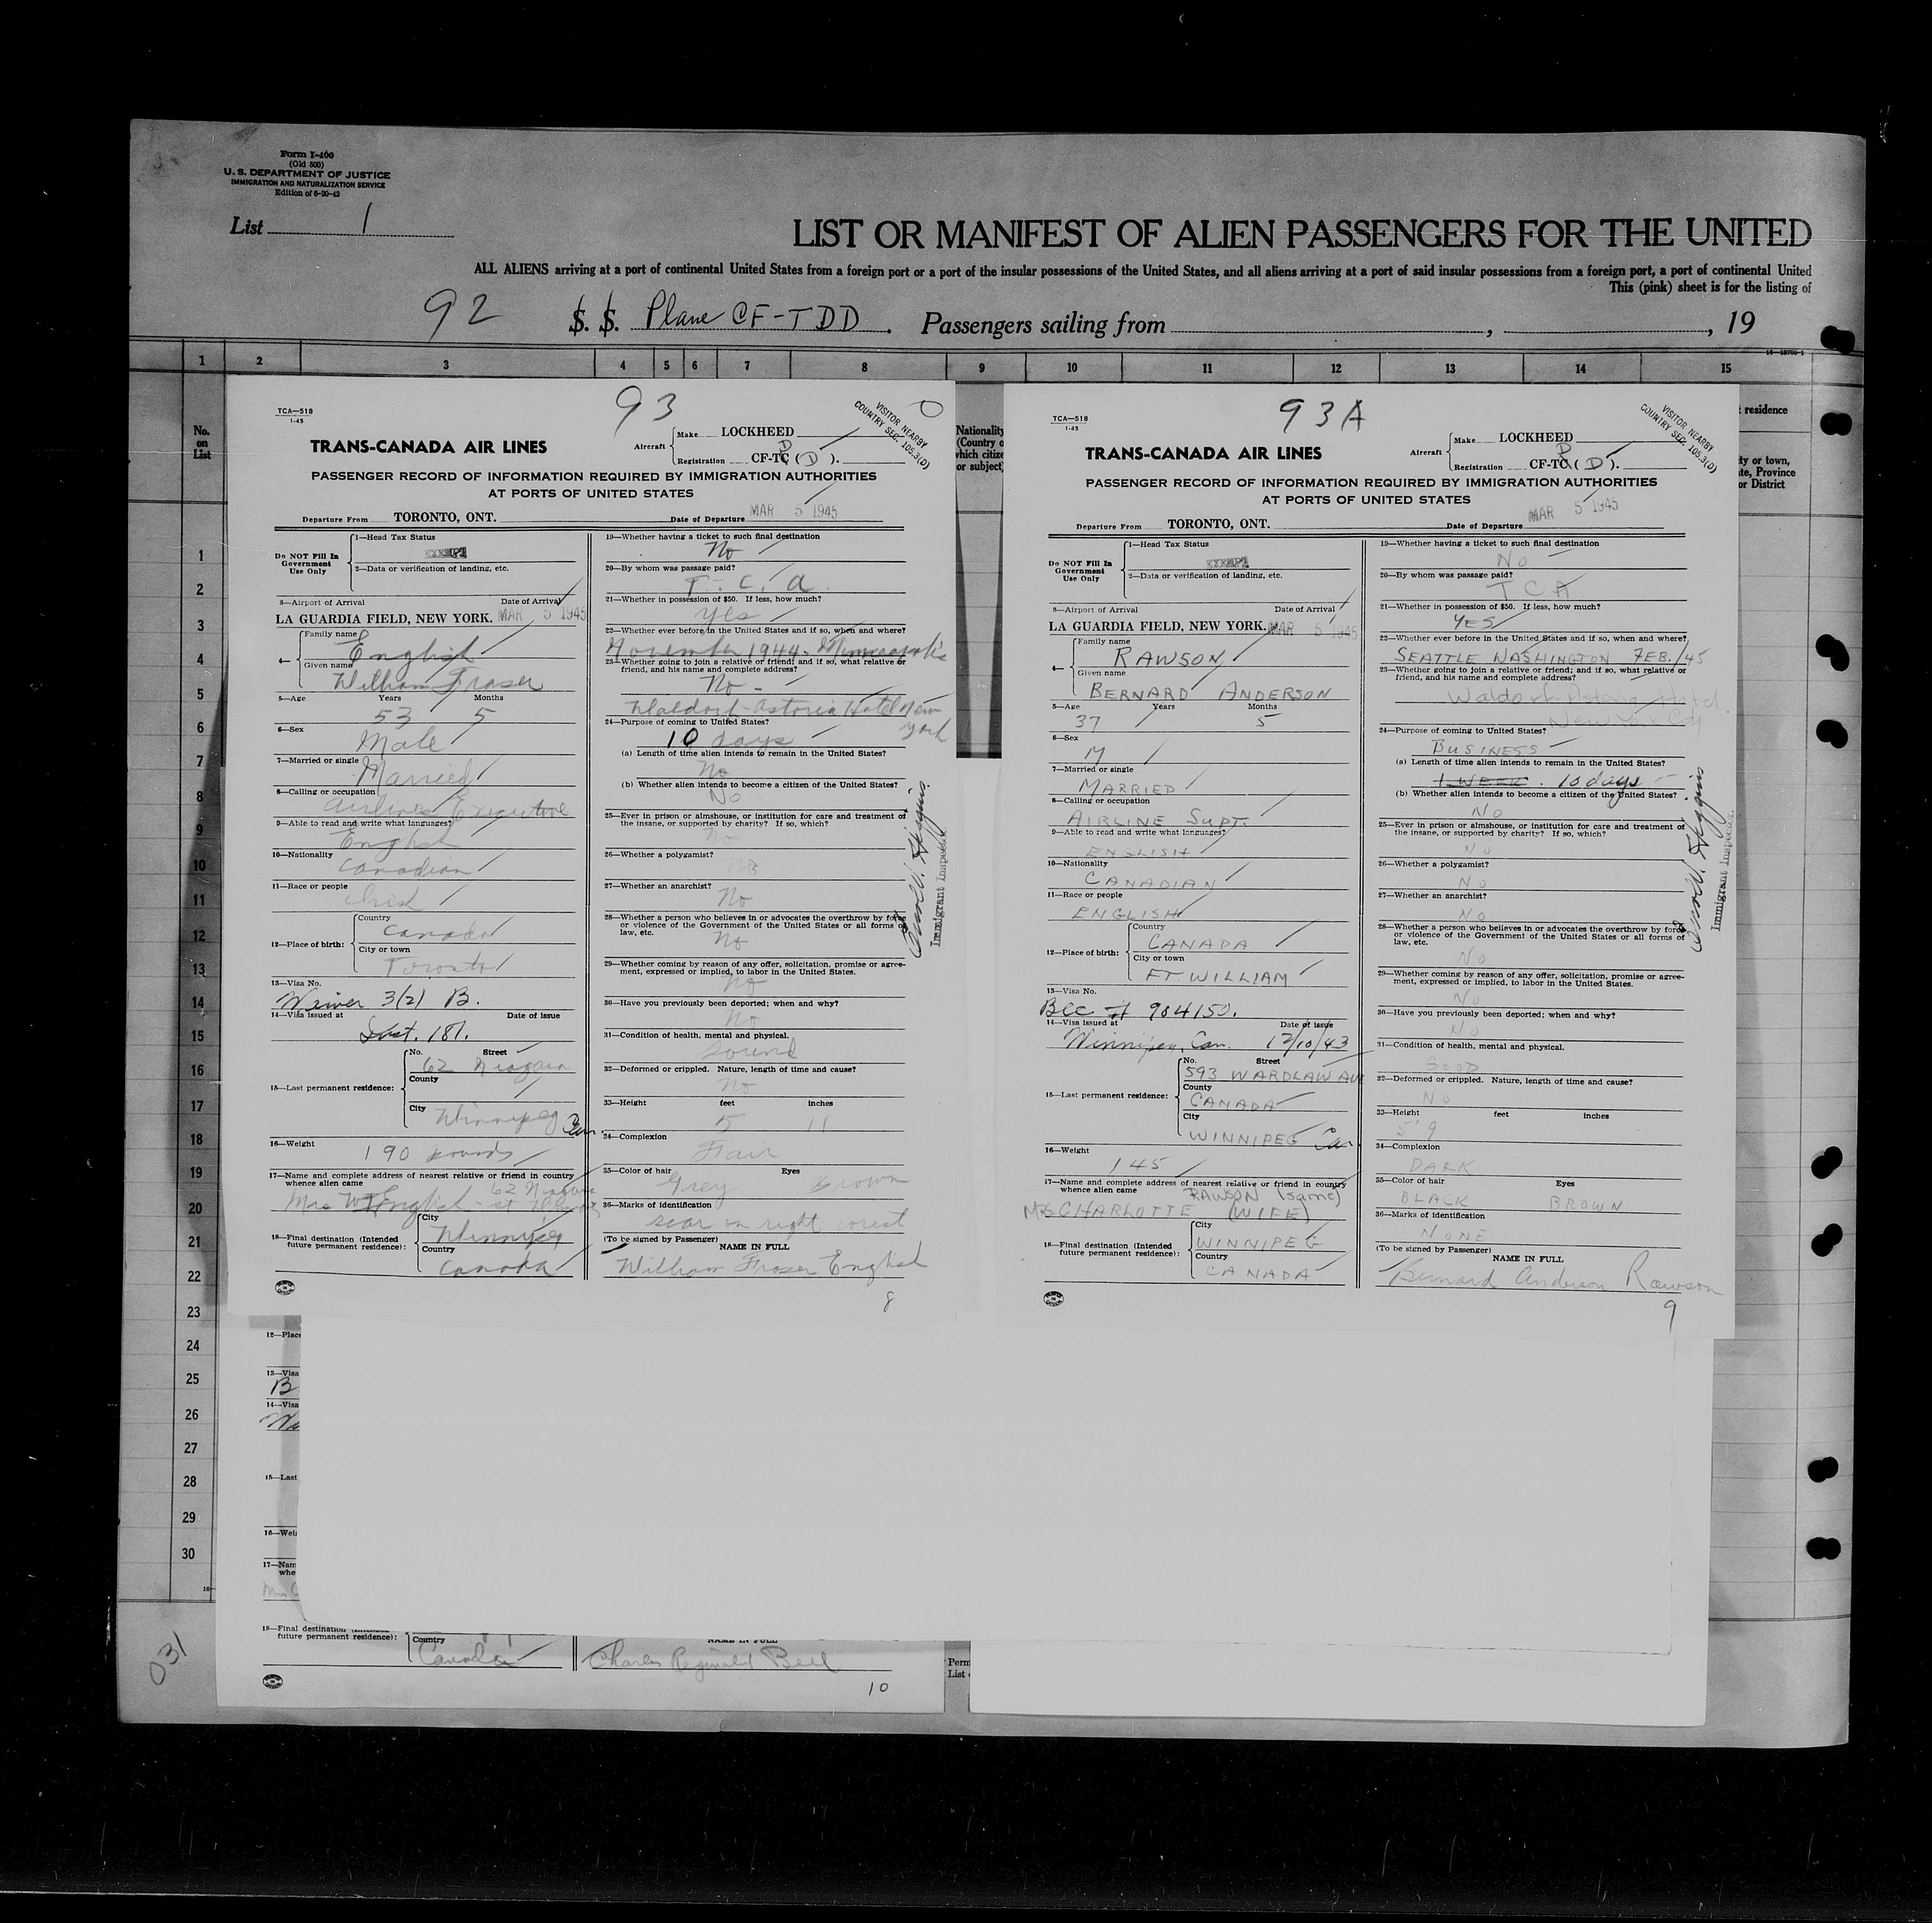 Form I-400
(Old 500)
U. S. DEPARTMENT OF JUSTICE
IMMIGRATION AND NATURALIZATION SERVICE
Edition of 6-20-42
List 1
LIST OR MANIFEST OF ALIEN PASSENGERS FOR THE UNITED
ALL ALIENS arriving at a port of continental United States from a foreign port or a port of the insular possessions of the United States, and all aliens arriving at a port of said insular possessions from a foreign port, a port of continental United
This (pink) sheet is for the listing of
92 S. S. Plane CF-TDD. Passengers sailing from , , 19
1 2 3 4 5 6 7 8 9 10 11 12 13 14 15
No.
on
List
1
2
3
4
5
6
7
8
9
10
11
12
13
14
15
16
17
18
19
20
21
22
23
24
25
26
27
28
29
30
16
031
93
TCA—518
1-45
TRANS-CANADA AIR LINES
Aircraft
Make LOCKHEED
Registration CF-TC (D).
D
VISITOR NEARBY
COUNTRY SEC. 105.3(D)
PASSENGER RECORD OF INFORMATION REQUIRED BY IMMIGRATION AUTHORITIES
AT PORTS OF UNITED STATES
Departure From TORONTO, ONT. Date of Departure MAR 5 1945
Do NOT Fill In
Government
Use Only
1—Head Tax Status
EXEMPT
2—Data or verification of landing, etc.
3—Airport of Arrival Date of Arrival
LA GUARDIA FIELD, NEW YORK. MAR 5 1945
4—
Family name
English
Given name
William Fraser
5—Age Years Months
53 5
6—Sex
Male
7—Married or single
Married
8—Calling or occupation
Airlines Executive
9—Able to read and write what languages?
English
10—Nationality
Canadian
11—Race or people
Irish
12—Place of birth:
Country
Canada
City or town
Toronto
13—Visa No.
Waiver 3(2) B.
14—Visa issued at Date of issue
181.
15—Last permanent residence:
No. Street
62 Niagara
County
City
Winnipeg Can.
16—Weight
190 pounds
17—Name and complete address of nearest relative or friend in country
whence alien came
62 Niagara
Mrs W F English - st
18—Final destination (Intended
future permanent residence):
City
Winnipeg
Country
Canada
19—Whether having a ticket to such final destination
No
20—By whom was passage paid?
T. C. A
21—Whether in possession of $50. If less, how much?
Yes
22—Whether ever before in the United States and if so, when and where?
November 1944 - Minneapolis
23—Whether going to join a relative or friend; and if so, what relative or
friend, and his name and complete address?
No -
Waldorf-Astoria Hotel New York
24—Purpose of coming to United States?
10 days
(a) Length of time alien intends to remain in the United States?
No
(b) Whether alien intends to become a citizen of the United States?
No
25—Ever in prison or almshouse, or institution for care and treatment of
the insane, or supported by charity? If so, which?
No
26—Whether a polygamist?
No
27—Whether an anarchist?
No
28—Whether a person who believes in or advocates the overthrow by force
or violence of the Government of the United States or all forms of
law, etc.
No
29—Whether coming by reason of any offer, solicitation, promise or agree-
ment, expressed or implied, to labor in the United States.
No
30—Have you previously been deported; when and why?
No
31—Condition of health, mental and physical.
Sound
32—Deformed or crippled. Nature, length of time and cause?
No
33—Height feet inches
5 11
34—Complexion
Fair
35—Color of hair Eyes
Grey Brown
36—Marks of identification
scar on right wrist
(To be signed by Passenger)
NAME IN FULL
William Fraser English
8
Immigrant Inspector
Nationality
(Country of
which citizen
or subject)
93A
TCA—518
1-45
TRANS-CANADA AIR LINES
Aircraft
Make LOCKHEED
Registration CF-TC (D).
D
VISITOR NEARBY
COUNTRY SEC. 105.3(D)
PASSENGER RECORD OF INFORMATION REQUIRED BY IMMIGRATION AUTHORITIES
AT PORTS OF UNITED STATES
Departure From TORONTO, ONT. Date of Departure MAR 5 1945
Do NOT Fill In
Government
Use Only
1—Head Tax Status
EXEMPT
2—Data or verification of landing, etc.
3—Airport of Arrival Date of Arrival
LA GUARDIA FIELD, NEW YORK. MAR 5 1945
4—
Family name
RAWSON
Given name
BERNARD ANDERSON
5—Age Years Months
37 5
6—Sex
M
7—Married or single
MARRIED
8—Calling or occupation
AIRLINE SUPT.
9—Able to read and write what languages?
ENGLISH
10—Nationality
CANADIAN
11—Race or people
ENGLISH
12—Place of birth:
Country
CANADA
City or town
FT. WILLIAM
13—Visa No.
BCC # 904150.
14—Visa issued at Date of issue
Winnipeg, Can. 12/10/43
15—Last permanent residence:
No. Street
593 WARDLAW AVE
County
CANADA
City
WINNIPEG Can.
16—Weight
145
17—Name and complete address of nearest relative or friend in country
whence alien came
RAWSON (same)
MRS. CHARLOTTE (WIFE)
18—Final destination (Intended
future permanent residence):
City
WINNIPEG
Country
CANADA
19—Whether having a ticket to such final destination
No
20—By whom was passage paid?
TCA
21—Whether in possession of $50. If less, how much?
YES
22—Whether ever before in the United States and if so, when and where?
SEATTLE WASHINGTON FEB./45
23—Whether going to join a relative or friend; and if so, what relative or
friend, and his name and complete address?
Waldorf-Astoria Hotel
New York City
24—Purpose of coming to United States?
BUSINESS
(a) Length of time alien intends to remain in the United States?
1 WEEK. 10 days
(b) Whether alien intends to become a citizen of the United States?
No
25—Ever in prison or almshouse, or institution for care and treatment of
the insane, or supported by charity? If so, which?
No
26—Whether a polygamist?
No
27—Whether an anarchist?
No
28—Whether a person who believes in or advocates the overthrow by force
or violence of the Government of the United States or all forms of
law, etc.
No
29—Whether coming by reason of any offer, solicitation, promise or agree-
ment, expressed or implied, to labor in the United States.
No
30—Have you previously been deported; when and why?
No
31—Condition of health, mental and physical.
GOOD
32—Deformed or crippled. Nature, length of time and cause?
No
33—Height feet inches
5' 9
34—Complexion
DARK
35—Color of hair Eyes
BLACK BROWN
36—Marks of identification
NONE
(To be signed by Passenger)
NAME IN FULL
Bernard Anderson Rawson
9
Immigrant Inspector
residence
ity or town,
ate, Province
or District
12—Place
13—Visa
B
14—Visa
15—Last
16—Wei
17—Nam
whe
18—Final destination
future permanent residence):
Country
Canada
NAME IN FULL
Charles Reginald Bell
10
Perm
List